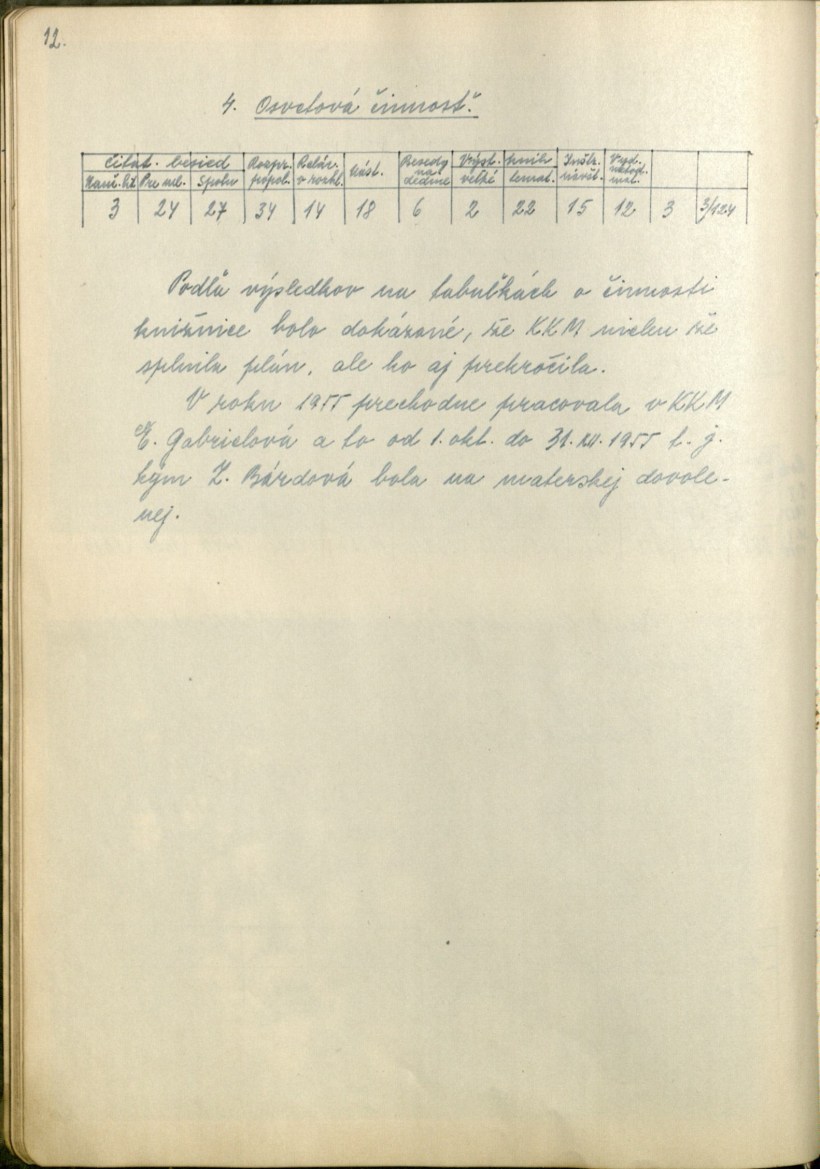 12.
4. Osvetová činnosť.
Čitat. besied Rozpr. Relác. Besedy Výst. kníh Inštr.
Pre ml. Spolu popol. v rozhl. část. na dedine veľké temat. návšt. mat.
3 24 27 34 14 18 6 2 22 15 12 3 3/124
Podľa výsledkov na tabuľkách o činnosti
knižnice bolo dokázané, že KKM nielen že
splnila plán, ale ho aj prekročila.
V roku 1955 prechodne pracovala v KKM
E. Gabrielová a to od 1. okt. do 31. XII. 1955 t. j.
kým Z. Bárdová bola na materskej dovole-
nej.